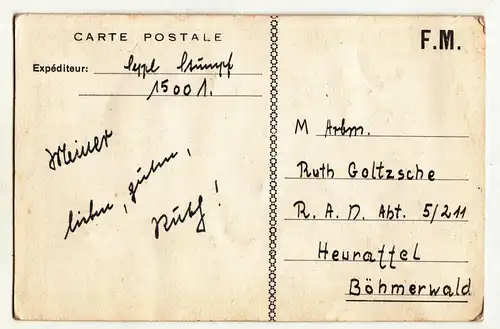 CARTE POSTALE
F.M.
Expéditeur: Seppl Stumpf
15001.
Meiner
lieben, guten,
Ruth!
M Arbm.
Ruth Goltzsche
R. A. D. Abt. 5/211
Heuraffel
Böhmerwald